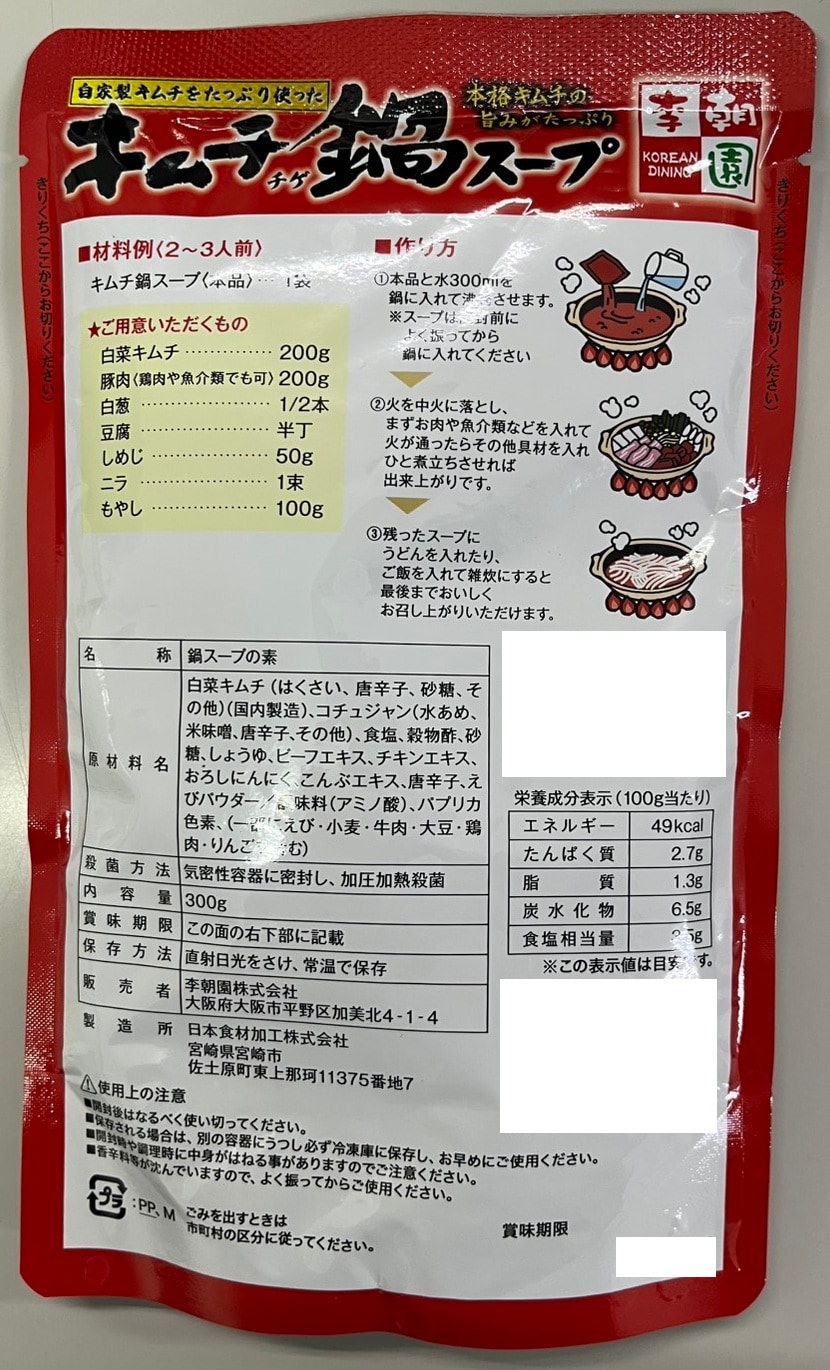 自家製キムチをたっぷり使った
本格キムチの
旨みがたっぷり
キムチ鍋スープ
チゲ
李朝園
KOREAN
DINING
きりくち(ここからお切りください)
きりくち(ここからお切りください)
■材料例〈2〜3人前〉
キムチ鍋スープ〈本品〉… 1袋
★ご用意いただくもの
白菜キムチ ‥‥‥‥‥ 200g
豚肉〈鶏肉や魚介類でも可〉200g
白葱 ‥‥‥‥‥‥‥ 1/2本
豆腐 ‥‥‥‥‥‥‥ 半丁
しめじ ‥‥‥‥‥‥ 50g
ニラ ‥‥‥‥‥‥‥ 1束
もやし ‥‥‥‥‥‥ 100g
■作り方
①本品と水300mlを
鍋に入れて沸させます。
※スープは封前に
よく振ってから
鍋に入れてください
②火を中火に落とし、
まずお肉や魚介類などを入れて
火が通ったらその他具材を入れ
ひと煮立ちさせれば
出来上がりです。
③残ったスープに
うどんを入れたり、
ご飯を入れて雑炊にすると
最後までおいしく
お召し上がりいただけます。
名称 鍋スープの素
原材料名 白菜キムチ(はくさい、唐辛子、砂糖、そ
の他)(国内製造)、コチュジャン(水あめ、
米味噌、唐辛子、その他)、食塩、穀物酢、砂
糖、しょうゆ、ビーフエキス、チキンエキス、
おろしにんにく、こんぶエキス、唐辛子、え
びパウダー/調味料(アミノ酸)、パプリカ
色素、(一部にえび・小麦・牛肉・大豆・鶏
肉・りんごを含む)
殺菌方法 気密性容器に密封し、加圧加熱殺菌
内容量 300g
賞味期限 この面の右下部に記載
保存方法 直射日光をさけ、常温で保存
販売者 李朝園株式会社
大阪府大阪市平野区加美北4-1-4
製造所 日本食材加工株式会社
宮崎県宮崎市
佐土原町東上那珂11375番地7
栄養成分表示(100g当たり)
エネルギー 49kcal
たんぱく質 2.7g
脂質 1.3g
炭水化物 6.5g
食塩相当量 5g
※この表示値は目安です。
⚠使用上の注意
■開封後はなるべく使い切ってください。
■保存される場合は、別の容器にうつし必ず冷凍庫に保存し、お早めにご使用ください。
■開封時や調理時に中身がはねる事がありますのでご注意ください。
■香辛料等が沈んでいますので、よく振ってからご使用ください。
プラ :PP、M ごみを出すときは
市町村の区分に従ってください。
賞味期限